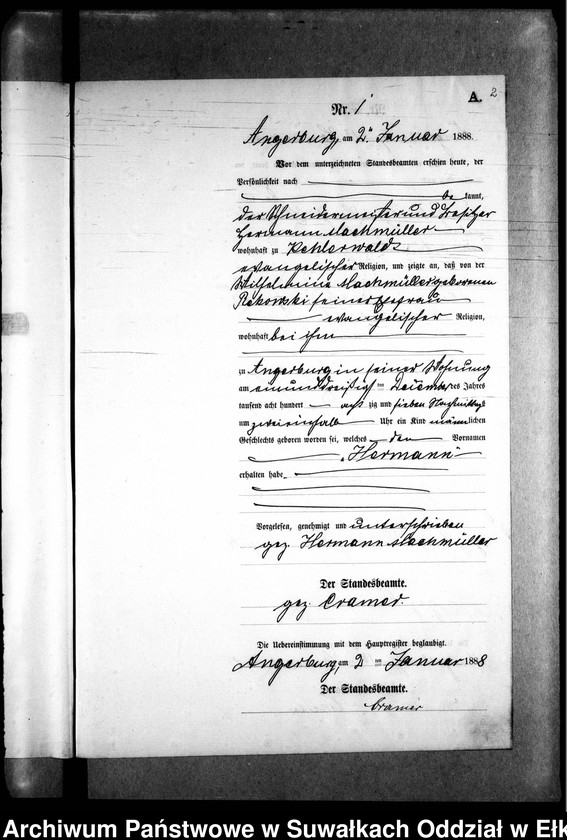 A. 2
Nr. 1
Angerburg, am 2ten Januar 1888.
Vor dem unterzeichneten Standesbeamten erschien heute, der
Persönlichkeit nach
be kannt,
der Schneidermeister und Besitzer
Hermann Machmüller
wohnhaft zu Kehlerwald
evangelischer Religion, und zeigte an, daß von der
Wilhelmine Machmüller geborenen
Rekowski seiner Ehefrau
evangelischer Religion,
wohnhaft bei ihm
zu Angerburg in seiner Wohnung
am einunddreißigsten Dezember des Jahres
tausend acht hundert acht zig und sieben Nachmittags
um zweieinhalb Uhr ein Kind männlichen
Geschlechts geboren worden sei, welches den Vornamen
„Hermann“
erhalten habe.
Vorgelesen, genehmigt und unterschrieben
gez. Hermann Machmüller
Der Standesbeamte.
gez. Cramer.
Die Uebereinstimmung mit dem Hauptregister beglaubigt.
Angerburg, am 2ten Januar 1888
Der Standesbeamte.
Cramer
Archiwum Państwowe w Suwałkach Oddział w Ełk